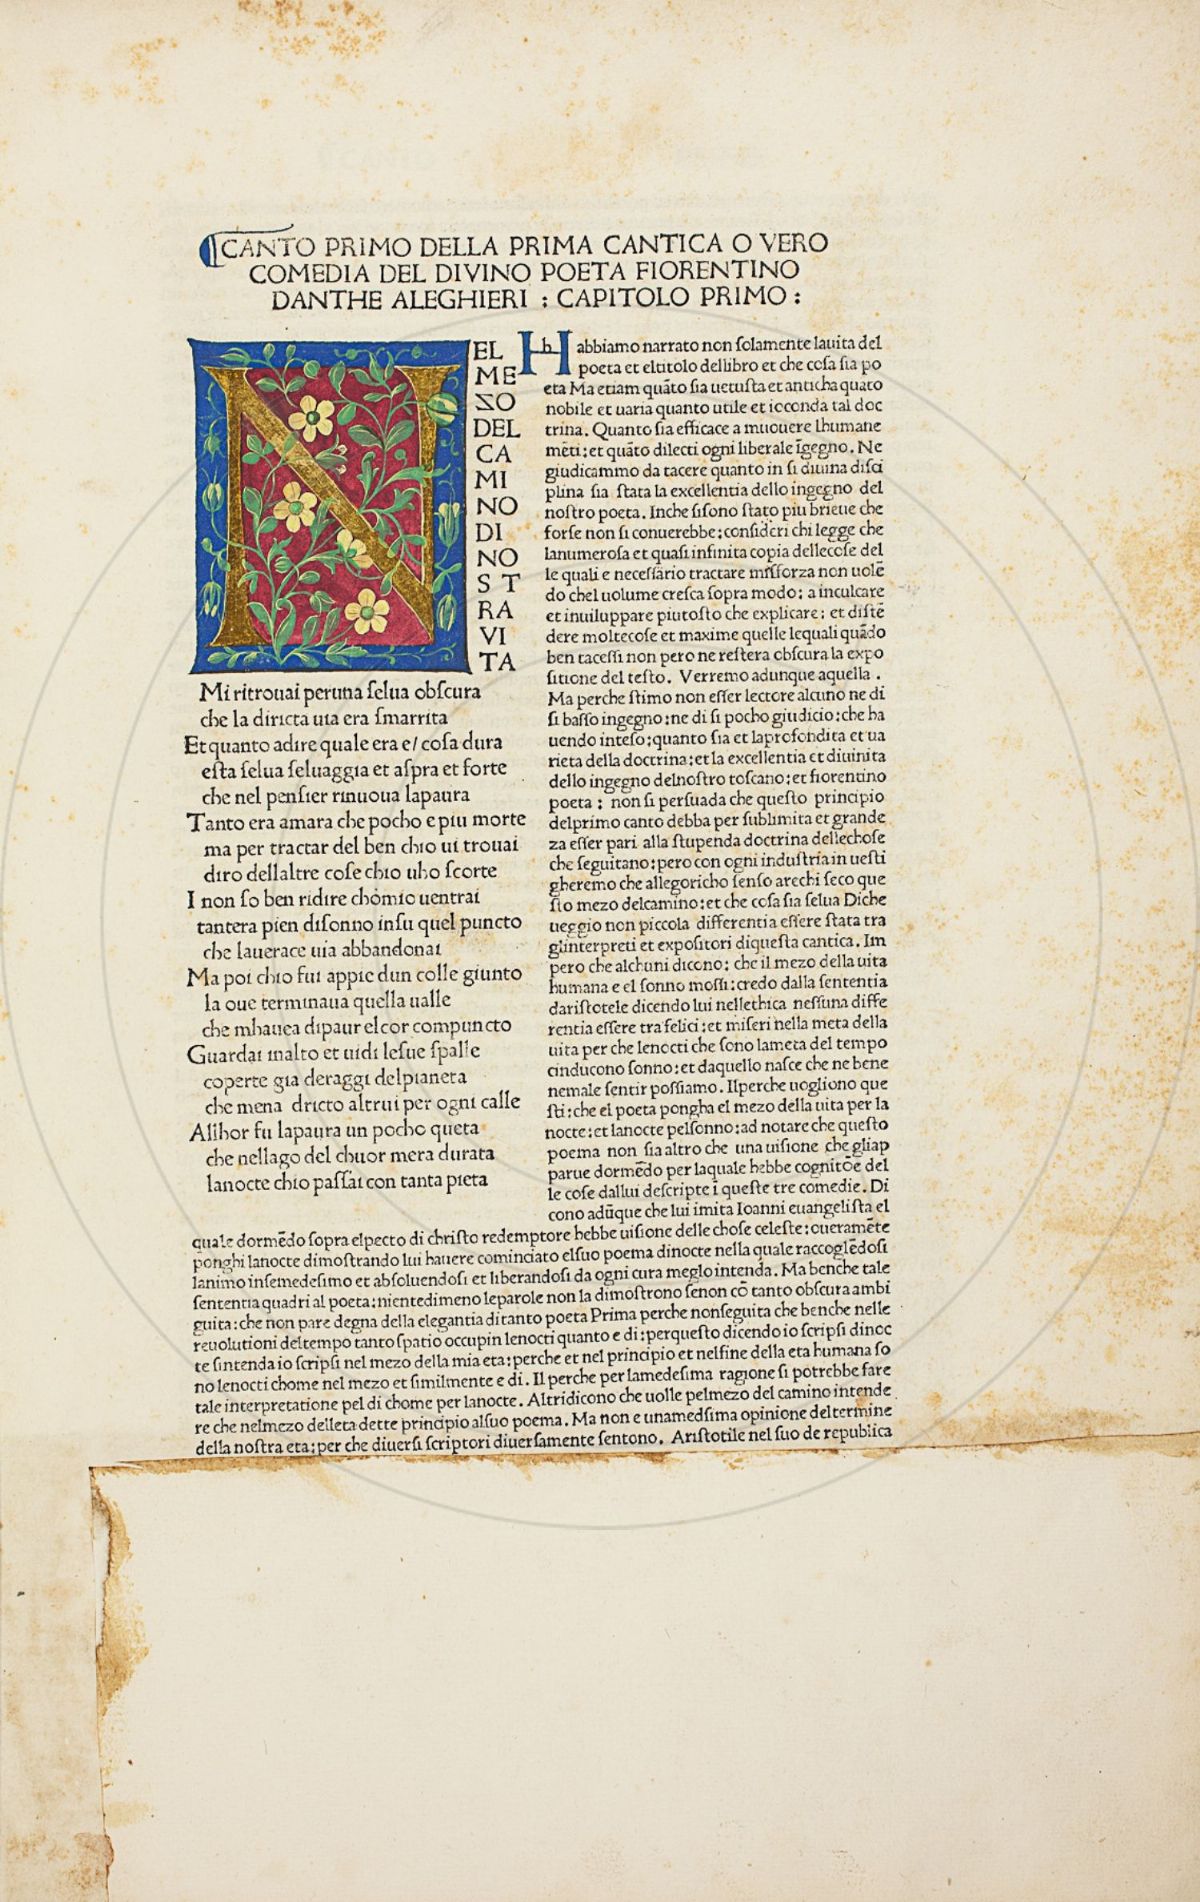 CANTO PRIMO DELLA PRIMA CANTICA O VERO
COMEDIA DEL DIVINO POETA FIORENTINO
DANTHE ALEGHIERI : CAPITOLO PRIMO :
N EL
ME
ZO
DEL
CA
MI
NO
DI
NO
S T
RA
VI
TA
Mi ritrouai peruna ſelua obſcura
che la diricta uia era ſmarrita
Et quanto adire quale era e/ coſa dura
eſta ſelua ſeluaggia et aſpra et forte
che nel penſier rinuoua lapaura
Tanto era amara che pocho e piu morte
ma per tractar del ben chio ui trouai
diro dellaltre coſe chio uho ſcorte
I non ſo ben ridire chomio uentrai
tantera pien diſonno inſu quel puncto
che lauerace uia abbandonai
Ma poi chio fui appie dun colle giunto
la oue terminaua quella ualle
che mhauea dipaur elcor compuncto
Guardai inalto et uidi leſue ſpalle
coperte gia deraggi delpianeta
che mena dricto altrui per ogni calle
Allhor fu lapaura un pocho queta
che nellago del chuor mera durata
lanocte chio paſſai con tanta pieta
Habbiamo narrato non ſolamente lauita del
poeta et eltitolo dellibro et che coſa ſia po
eta Ma etiam quāto ſia uetuſta et anticha quāto
nobile et uaria quanto utile et ioconda tal doc
trina. Quanto ſia efficace a muouere lhumane
mēti:et quāto dilecti ogni liberale īgegno. Ne
giudicammo da tacere quanto in ſi diuina diſci
plina ſia ſtata la excellentia dello ingegno del
noſtro poeta. Inche ſiſono ſtato piu brieue che
forſe non ſi conuerebbe:conſideri chi legge che
lanumeroſa et quaſi infinita copia dellecoſe del
le quali e neceſſario tractare miſforza non uolē
do chel uolume creſca ſopra modo: a inculcare
et inuiluppare piutoſto che explicare: et diſtē
dere moltecoſe et maxime quelle lequali quādo
ben taceſſi non pero ne reſtera obſcura la expo
ſitione del teſto. Verremo adunque aquella .
Ma perche ſtimo non eſſer lectore alcuno ne di
ſi baſſo ingegno:ne di ſi pocho giudicio:che ha
uendo inteſo:quanto ſia et laprofondita et ua
rieta della doctrina:et la excellentia et diuinita
dello ingegno delnoſtro toſcano:et fiorentino
poeta : non ſi perſuada che queſto principio
delprimo canto debba per ſublimita et grande
za eſſer pari alla ſtupenda doctrina dellechoſe
che ſeguitano:pero con ogni induſtria in ueſti
gheremo che allegoricho ſenſo arechi ſeco que
ſto mezo delcamino:et che coſa ſia ſelua Diche
ueggio non piccola differentia eſſere ſtata tra
glinterpreti et expoſitori diqueſta cantica. Im
pero che alchuni dicono: che il mezo della uita
humana e el ſonno moſſi:credo dalla ſententia
dariſtotele dicendo lui nellethica neſſuna diffe
rentia eſſere tra felici:et miſeri nella meta della
uita per che lenocti che ſono lameta del tempo
cinducono ſonno:et daquello naſce che ne bene
nemale ſentir poſſiamo. Ilperche uogliono que
ſti:che el poeta pongha el mezo della uita per la
nocte:et lanocte pelſonno:ad notare che queſto
poema non ſia altro che una uiſione che gliap
parue dormēdo per laquale hebbe cognitōe del
le coſe dallui deſcripte ī queſte tre comedie. Di
cono adūque che lui imita Ioanni euangeliſta el
quale dormēdo ſopra elpecto di chriſto redemptore hebbe uiſione delle choſe celeſte:oueramēte
ponghi lanocte dimoſtrando lui hauere cominciato elſuo poema dinocte nella quale raccoglēdoſi
lanimo inſemedeſimo et abſoluendoſi et liberandoſi da ogni cura meglo intenda. Ma benche tale
ſententia quadri al poeta:nientedimeno leparole non la dimoſtrono ſenon cō tanto obſcura ambi
guita:che non pare degna della elegantia di tanto poeta Prima perche nonſeguita che benche nelle
reuolutioni deltempo tanto ſpatio occupin lenocti quanto e di:perqueſto dicendo io ſcripſi dinoc
te ſintenda io ſcripſi nel mezo della mia eta:perche et nel principio et nelfine della eta humana ſo
no lenocti chome nel mezo et ſimilmente e di. Il perche per lamedeſima ragione ſi potrebbe fare
tale interpretatione pel di chome per lanocte. Altri dicono che uolle pelmezo del camino intende
re che nelmezo delleta dette principio alſuo poema. Ma non e unamedſima opinione deltermine
della noſtra eta:per che diuerſi ſcriptori diuerſamente ſentono. Ariſtotile nel ſuo de republica